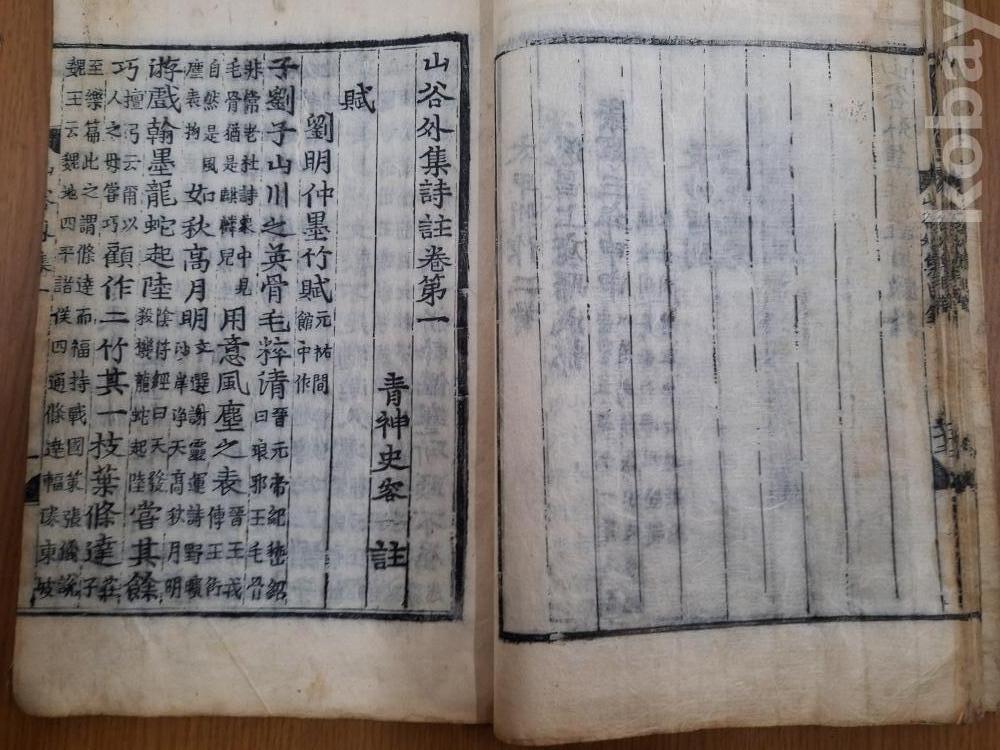 山谷外集詩註卷第一
青神史容 註
賦
劉明仲墨竹賦 元祐間館中作
子劉子山川之英骨毛粹清 晉元帝紀嵇紹曰琅邪王毛骨
非常老杜詩衆中見毛骨猶是麒麟兒 用意風塵之表 晉王戎傳王衍
自然是風塵表物 如秋高月明 文選謝靈運詩野曠沙岸淨天高秋月明
游戲翰墨龍蛇起陸 陰符經曰天發殺機龍蛇起陸 嘗其餘
巧 檀弓云爾以人之母嘗巧 顧作二竹其一枝葉條達 莊子
至樂篇此之謂條達而福持戰國策張儀說
魏王云魏地四平諸侯四通條達輻湊東坡
kobay